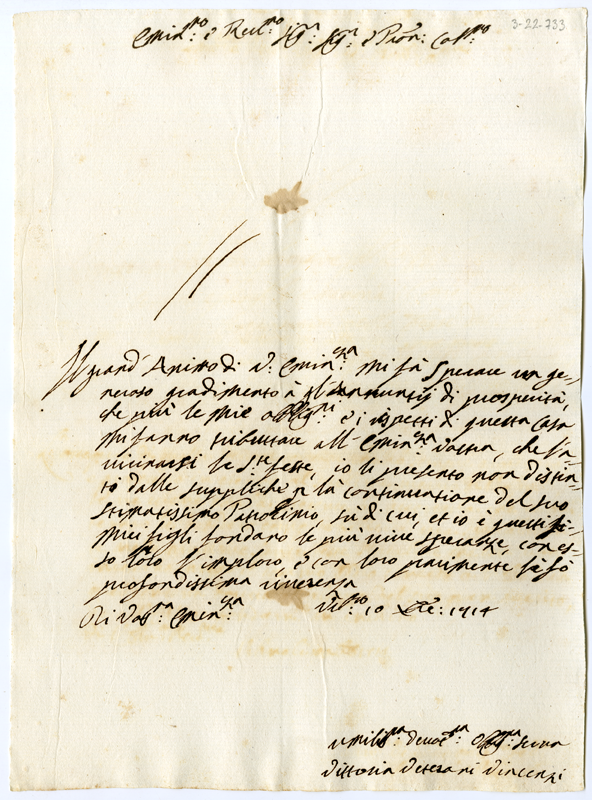 3-22-733
Emin.mo e Rev.mo Sig.r Sig.r e Pron. Col.mo
Il grand' Animo di V. Emin.za mi fà sperare un ge-
neroso gradimento à gl'Annuntij di prosperità,
che più le mie obblig.ni e i rispetti di questa Casa
mi fanno tributtare all' Emin.za Vostra, che s'a
vicinarsi le S.te feste, io li presento non distin-
to dalle suppliche p la continuatione del suo
stimatissimo Patrocinio, sù di cui, et io e questi
miei figli fondano le più vive speranze, con es-
so loro l'imploro, e con loro parimente
profondissima riverenza
Di Vos.ra Emin.za 10 Xbre: 1714
Umilis.ma Devot.ma Obblig.ma Serva
Vittoria Vincenzi